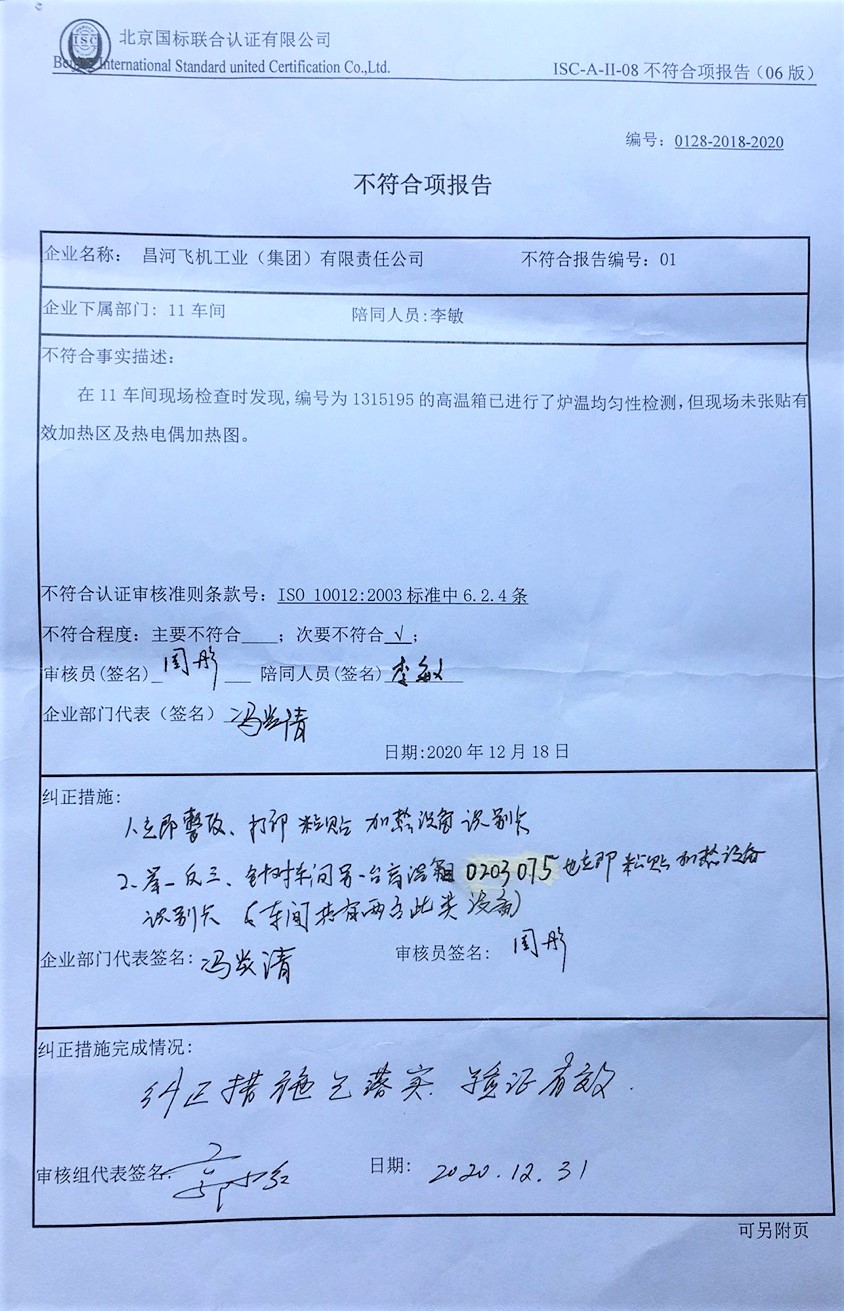 ISC
北京国标联合认证有限公司
Beijing International Standard united Certification Co.,Ltd.
ISC-A-II-08 不符合项报告（06 版）
编号：0128-2018-2020
不符合项报告
企业名称： 昌河飞机工业（集团）有限责任公司 不符合报告编号：01
企业下属部门：11 车间 陪同人员:李敏
不符合事实描述：
在 11 车间现场检查时发现,编号为 1315195 的高温箱已进行了炉温均匀性检测,但现场未张贴有
效加热区及热电偶加热图。
不符合认证审核准则条款号：ISO 10012:2003 标准中 6.2.4 条
不符合程度：主要不符合____；次要不符合 √；
审核员(签名) 周彤 陪同人员(签名) 李敏
企业部门代表（签名） 冯炎清
日期:2020 年 12 月 18 日
纠正措施：
1、立即整改、打印粘贴加热设备识别卡
2、举一反三、针对车间另一台高温箱 0203075 也立即粘贴加热设备
识别卡（车间共有两台此类设备）
企业部门代表签名：冯炎清 审核员签名：周彤
纠正措施完成情况：
纠正措施已落实 验证有效.
审核组代表签名: 日期: 2020.12.31
可另附页